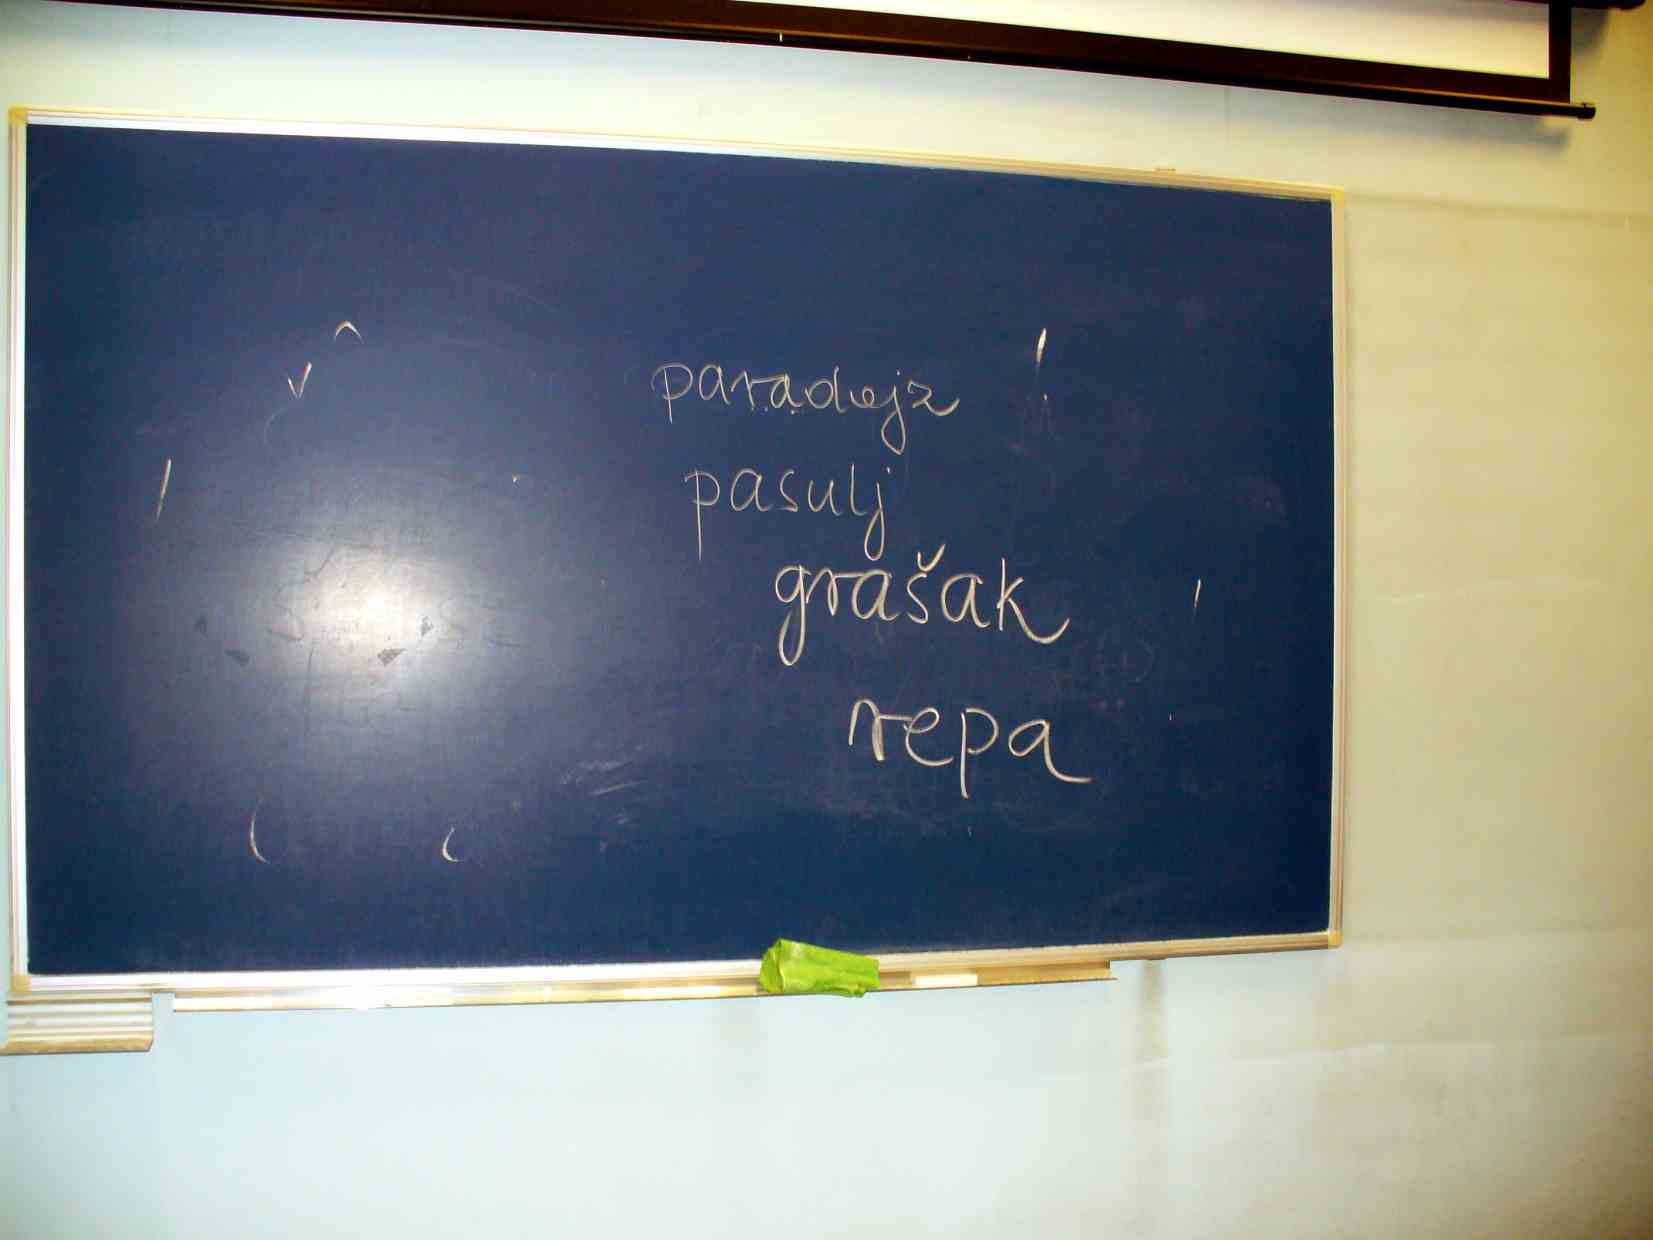 paradejz
pasulj
grašak
repa